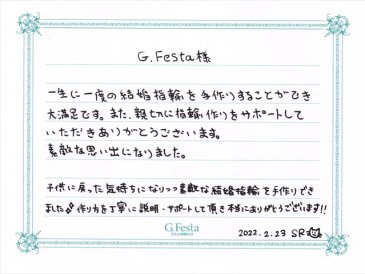 G.Festa様
一生に一度の結婚指輪を手作りすることができ
大満足です。また、親切に指輪作りをサポートして
いただきありがとうございます。
素敵な思い出になりました。
子供に戻った気持ちになりつつ素敵な結婚指輪を手作りでき
ました♪ 作り方を丁寧に説明・サポートして頂き本当にありがとうございます!!
G.Festa
DIAMOND
2022.2.23 SR